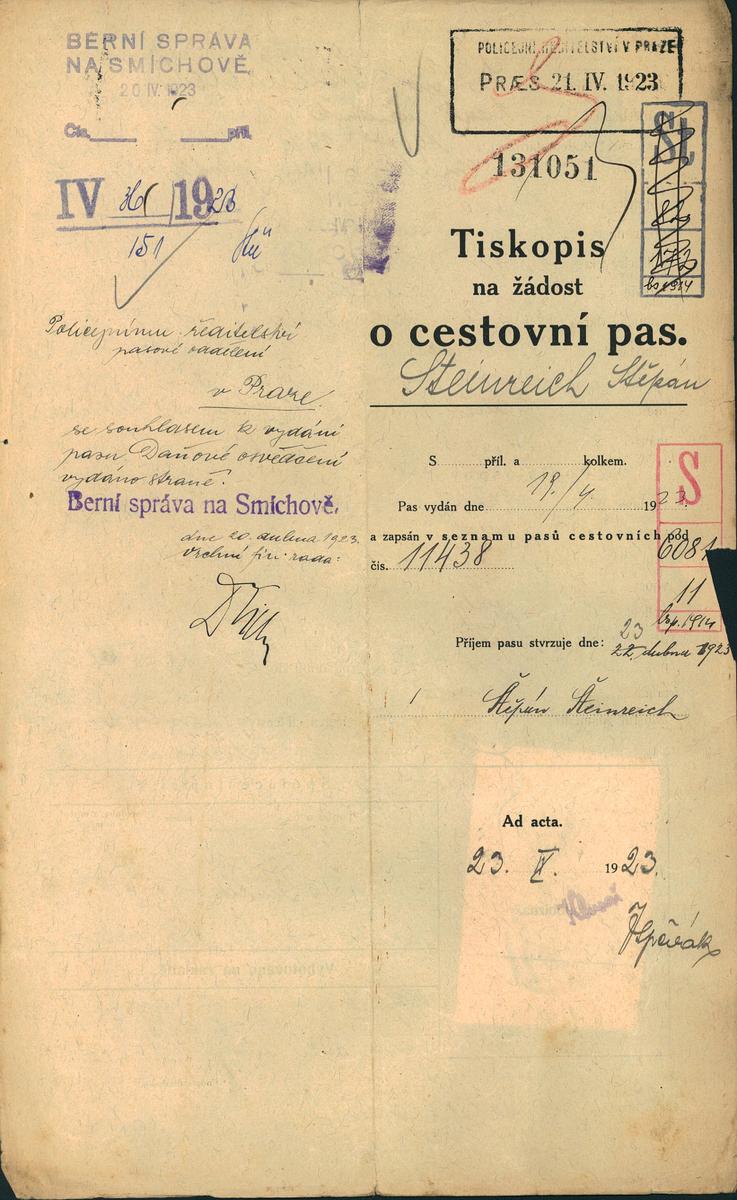 BERNÍ SPRÁVA
NA SMÍCHOVĚ
20 IV. 1923
Čís. příl.
IV 1923
151
Policejnímu ředitelství
pasové oddělení
v Praze.
se souhlasem k vydání
pasu Daňové osvědčení
vydáno straně.
Berní správa na Smíchově,
dne 20. dubna 1923.
vrchní fin. rada:
POLICEJNÍ ŘEDITELSTVÍ V PRAZE
PRÆS 21. IV. 1923
131051
St
Tiskopis
na žádost
o cestovní pas.
Steinreich Štěpán
S příl. a kolkem.
Pas vydán dne 19/4. 1923.
a zapsán v seznamu pasů cestovních pod
čís. 11438
S
6081
11
Příjem pasu stvrzuje dne: 23
22. dubna 1923
Štěpán Šteinreich
Ad acta.
23. IV. 1923.